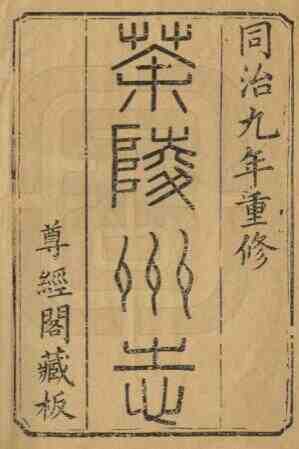 同治九年重修
茶陵州志
尊經閣藏板